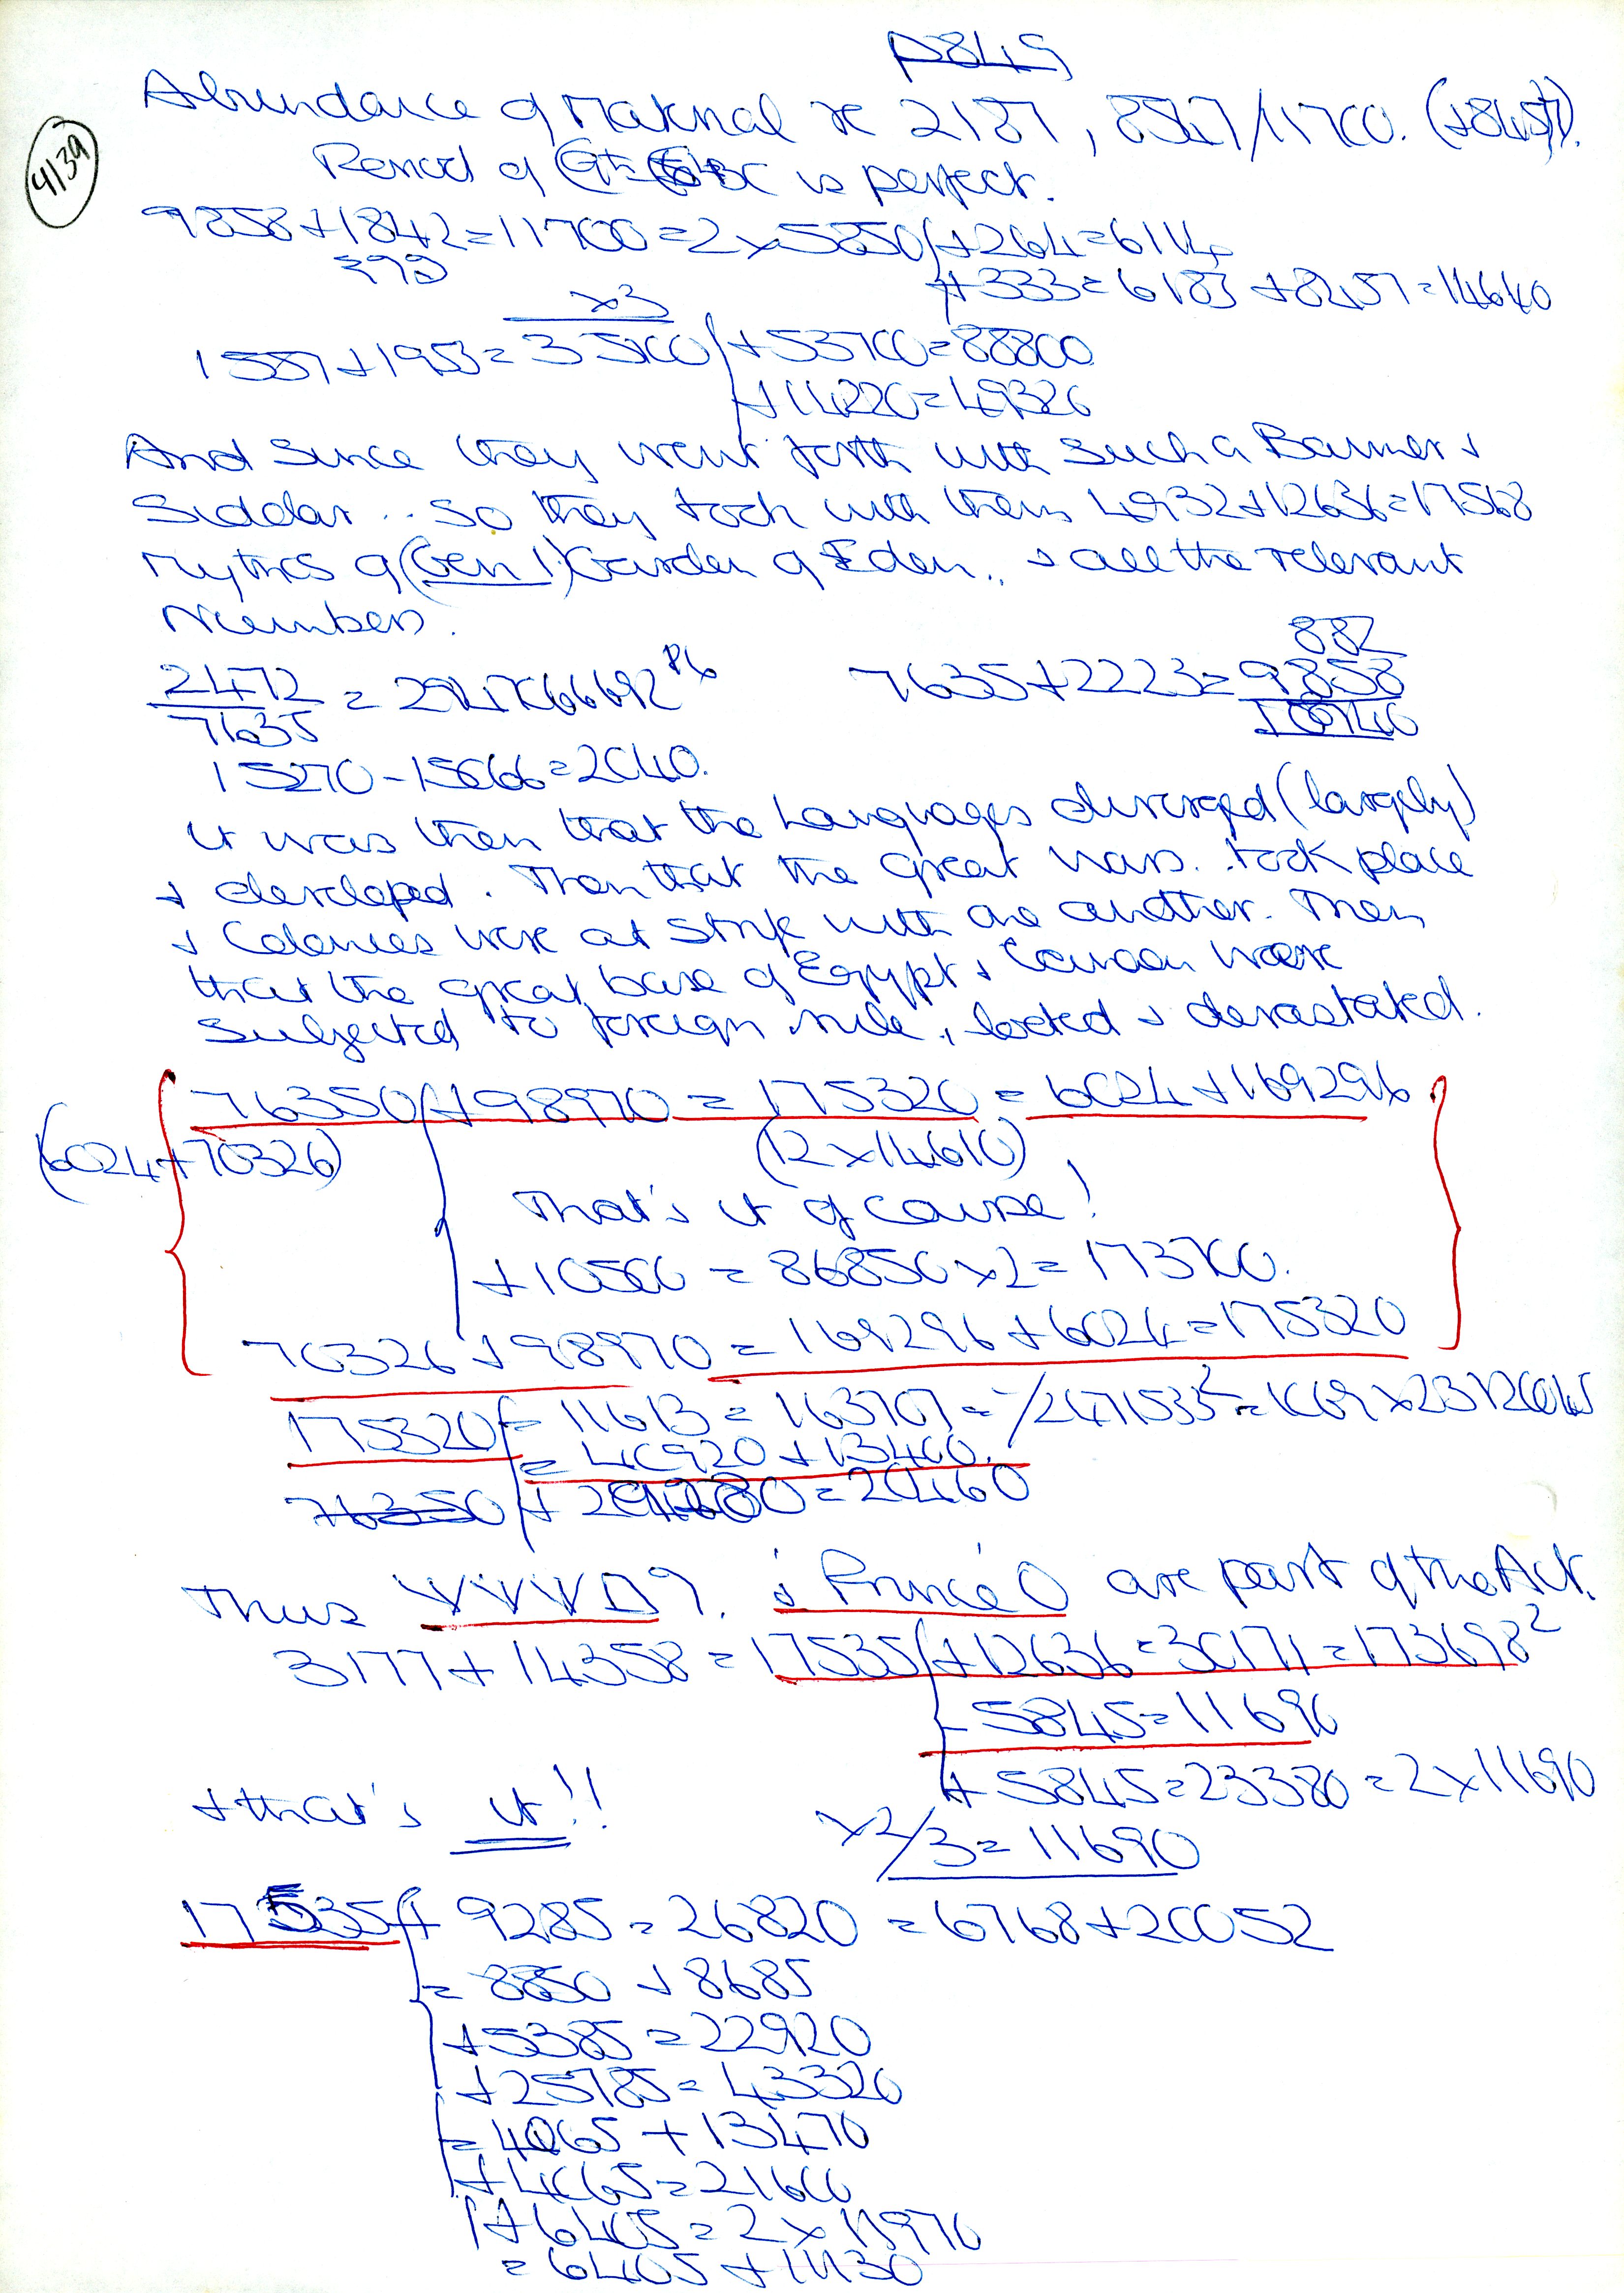 p845
4139
Abundance of Material re 2187, 8517/11700. (+8457).
Period of BC is perfect.
9858+1842=11700=2x5850(+264=6114
+333=6183+8457=14640
x3
1557+1953=3500(+53700=88800
+14220=49320
And since they went forth with such a Banner &
Siddar .. so they took with them 4932+12636=17568
Mythics of (Gen 1) Garden of Eden.. & all the relevant
Numbers.
882
2472/7635 = 
7635+2223=9858
10740
15270-15666=2040.
it was then that the Languages diverged (largely)
& developed. Then that the great wars. took place
& Colonies were at strife with one another. Then
that the great base of Egypt & Canaan were
subjected to foreign rule, looted & devastated.
76350(+98970=175320=6024+169296
(6024+70326)
(12x14610)
That's it of course!
+10500=86850x2=173700.
70326+98970=169296+6024=175320
175320(-11613=163707=
=40920+13400.
76350 =20460
Thus VVVD?. & 'Prince' O are part of the Act.
3177+14358=17535(+12636=30171=173698²
-5845=11690
+5845=23380=2x11690
& that's it!!
x2/3=11690
17535(+9285=26820=6768+20052
=8850+8685
+5385=22920
+25785=43320
=4065+13470
+4065=21600
+6405=2x11970
=6405+11130